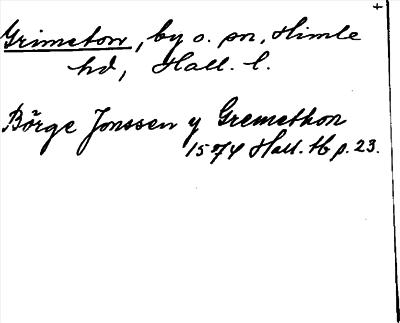 +
Grimeton, by o. sn, Himle
hd, Hall. l.
Börge Jonssen y Gremethon
1574 Hall. tb p. 23.